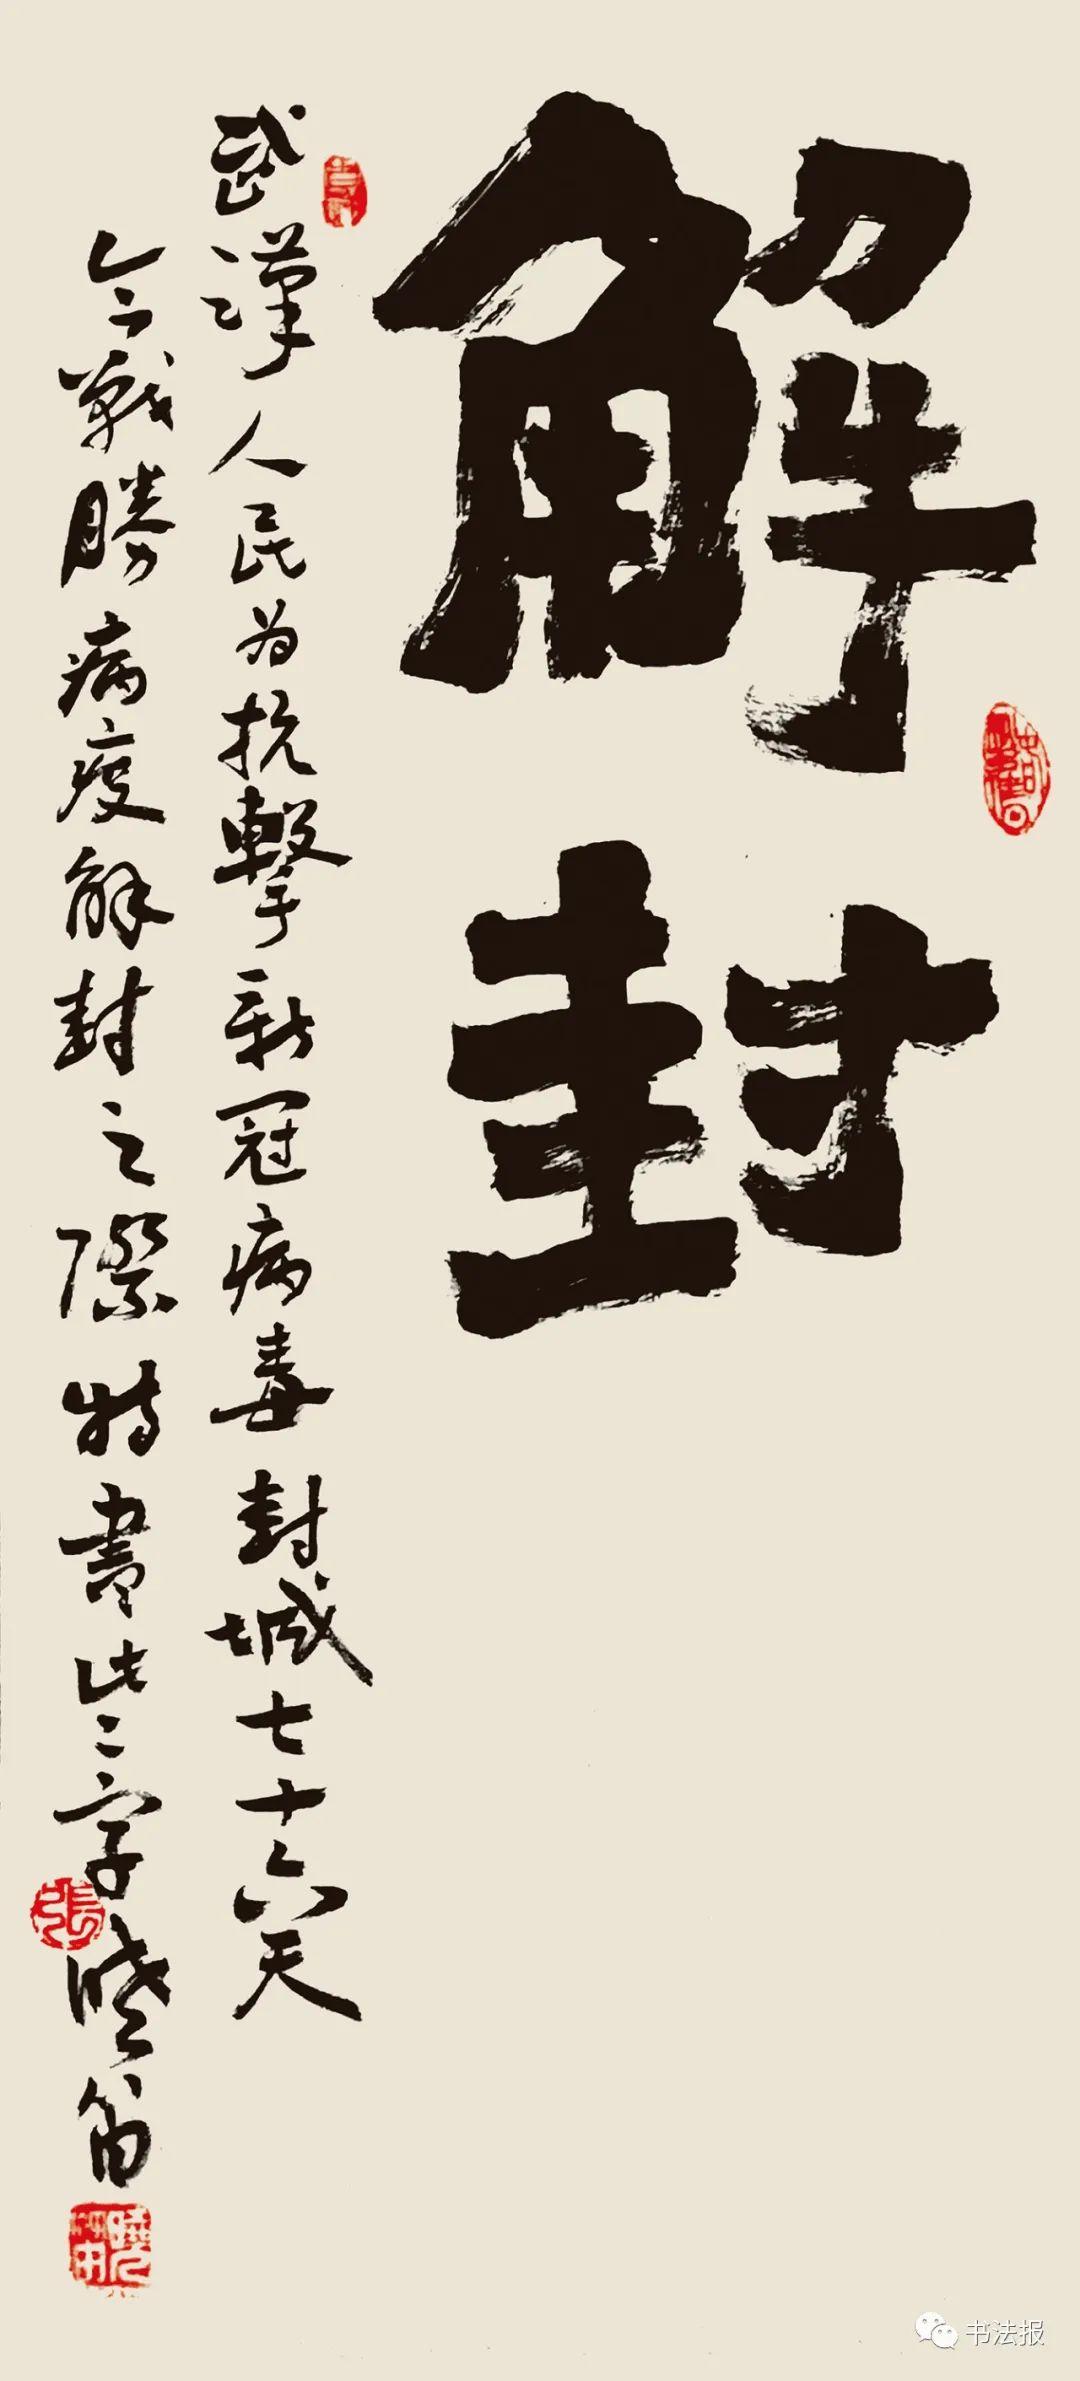 解封
武漢人民为抗擊新冠病毒封城七十六天
今戰勝病疫解封之際特書此二字曉笛
張
曉笛
书法报